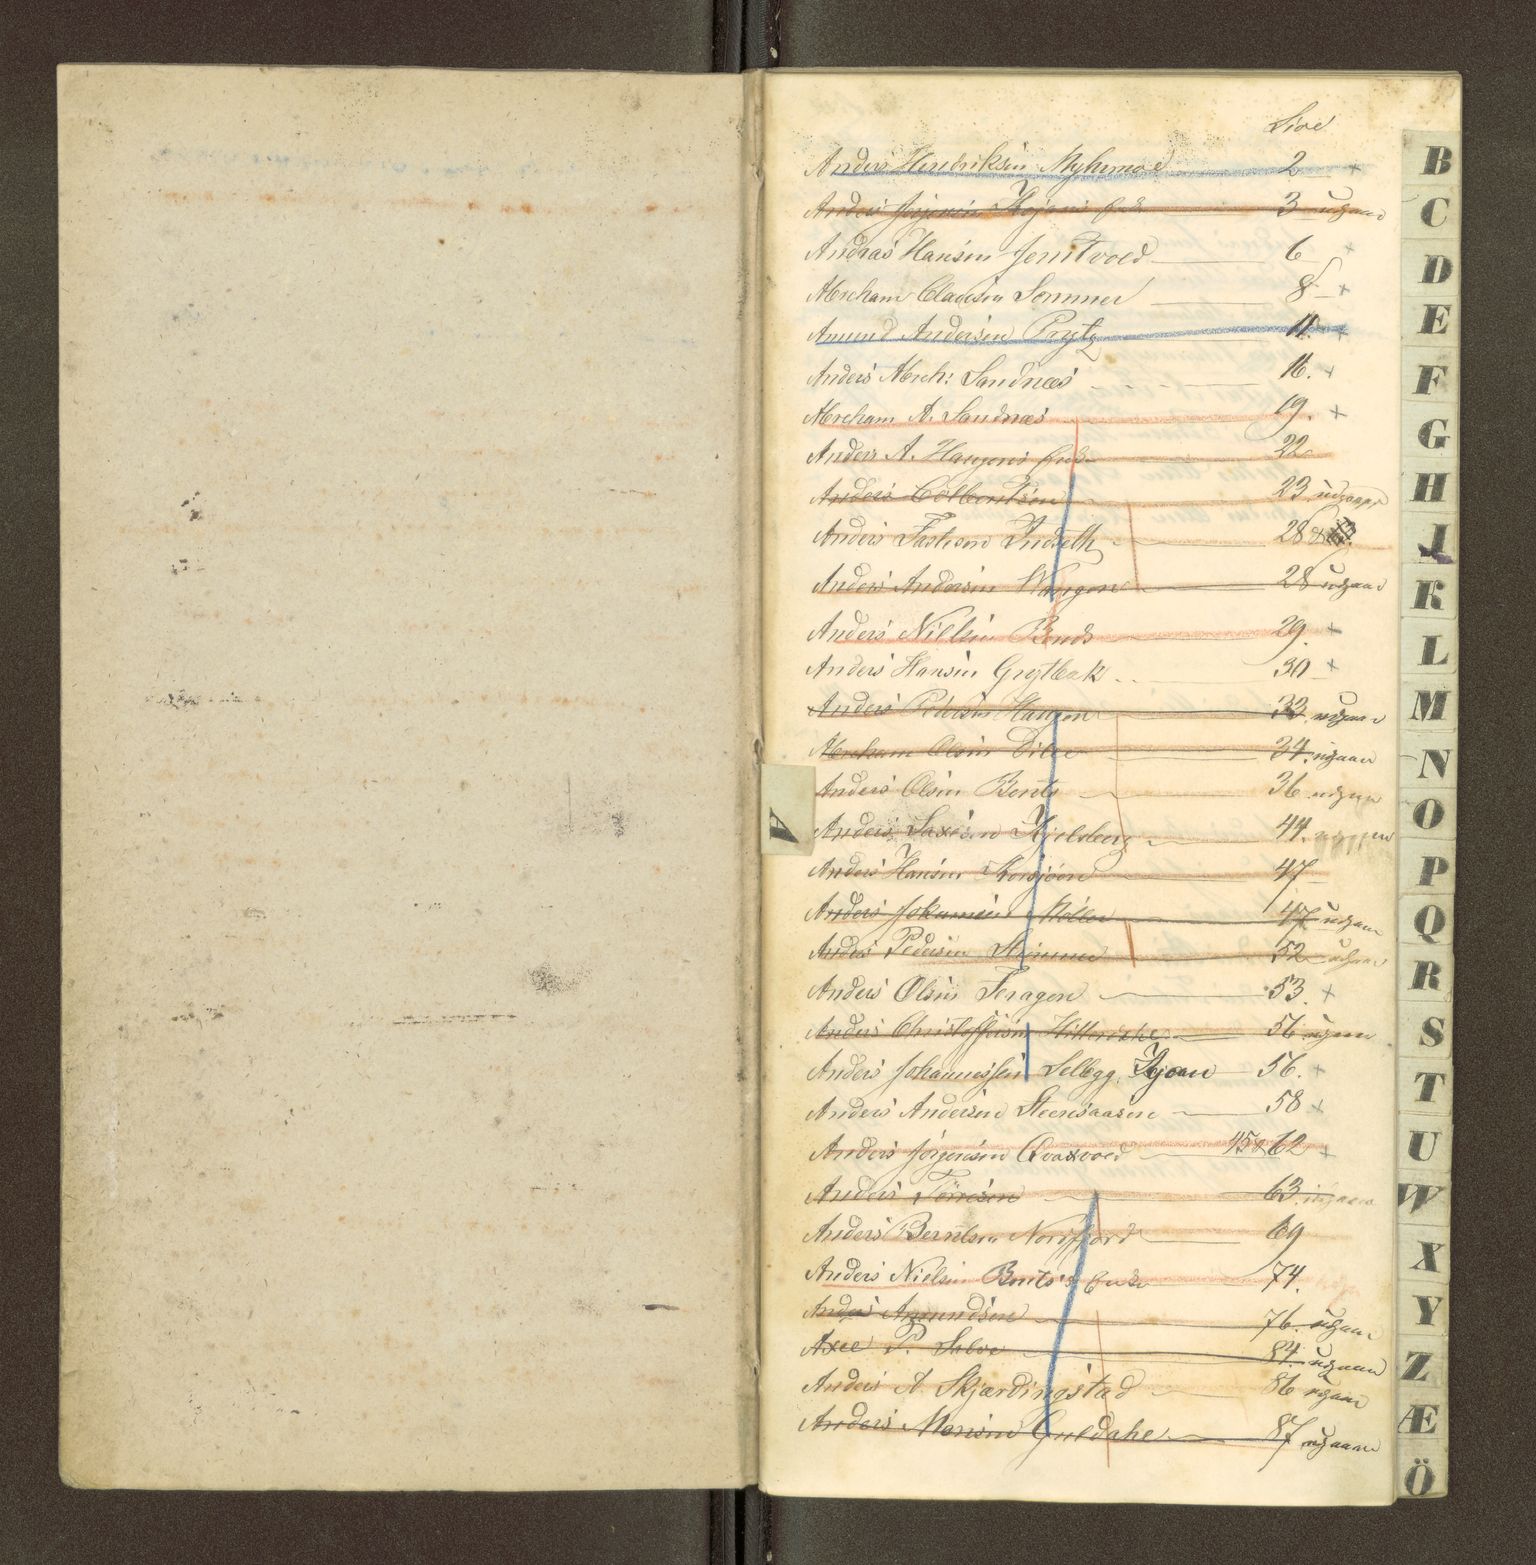 Side
Anders Hendriksen Myhrmoe 2 +
Anders Jørgensen Kojens Enke 3 udgaar
Andras Hansen Jemtvold 6 +
Abraham Claussen Sommer 8 +
Amund Andersen Prytz 11. +
Anders Abrah: Sandnæs 16. +
Abraham A. Sandnæs 19. +
Anders A. Haugens Enke 22
Anders Colbentsen 23 udgaar
Anders Indseth 28
Anders Andersen Haugen 28 udgaar
Anders Nielsen Bends 29. +
Anders Hansen Grytbak 30 +
Anders Pedersen Haugen 33. udgaar
Abraham Olsen 34. udgaar
Anders Olsen Bents 36 udgaar
Anders Saxesen Kjelsberg 44. udgaar
Anders Hansen Korsjöen 47
Anders Johannesen Möller 47 udgaar
Anders Pedersen 52 udgaar
Anders Olsen Feragen 53. +
Anders Christoffersen Hitterdahl 56 udgaar
Anders Johannessen Sellegg, Kjoan 56. +
Anders Andersen Steensaasen 58 +
Anders Jörgensen Qvaxvold 45 & 62 +
Anders Tönnesen 63. udgaar
Anders Berntsen Nordfjord 69
Anders Nielsen Bents's Enke 74.
Anders Amundsen 76. udgaar
Axel P. Salve 84. udgaar
Anders A. Skjærdingstad 86 udgaar
Anders Monsen Guldahl 87 udgaar
A
B
C
D
E
F
G
H
J
K
L
M
N
O
P
Q
R
S
T
U
W
X
Y
Z
Æ
Ö